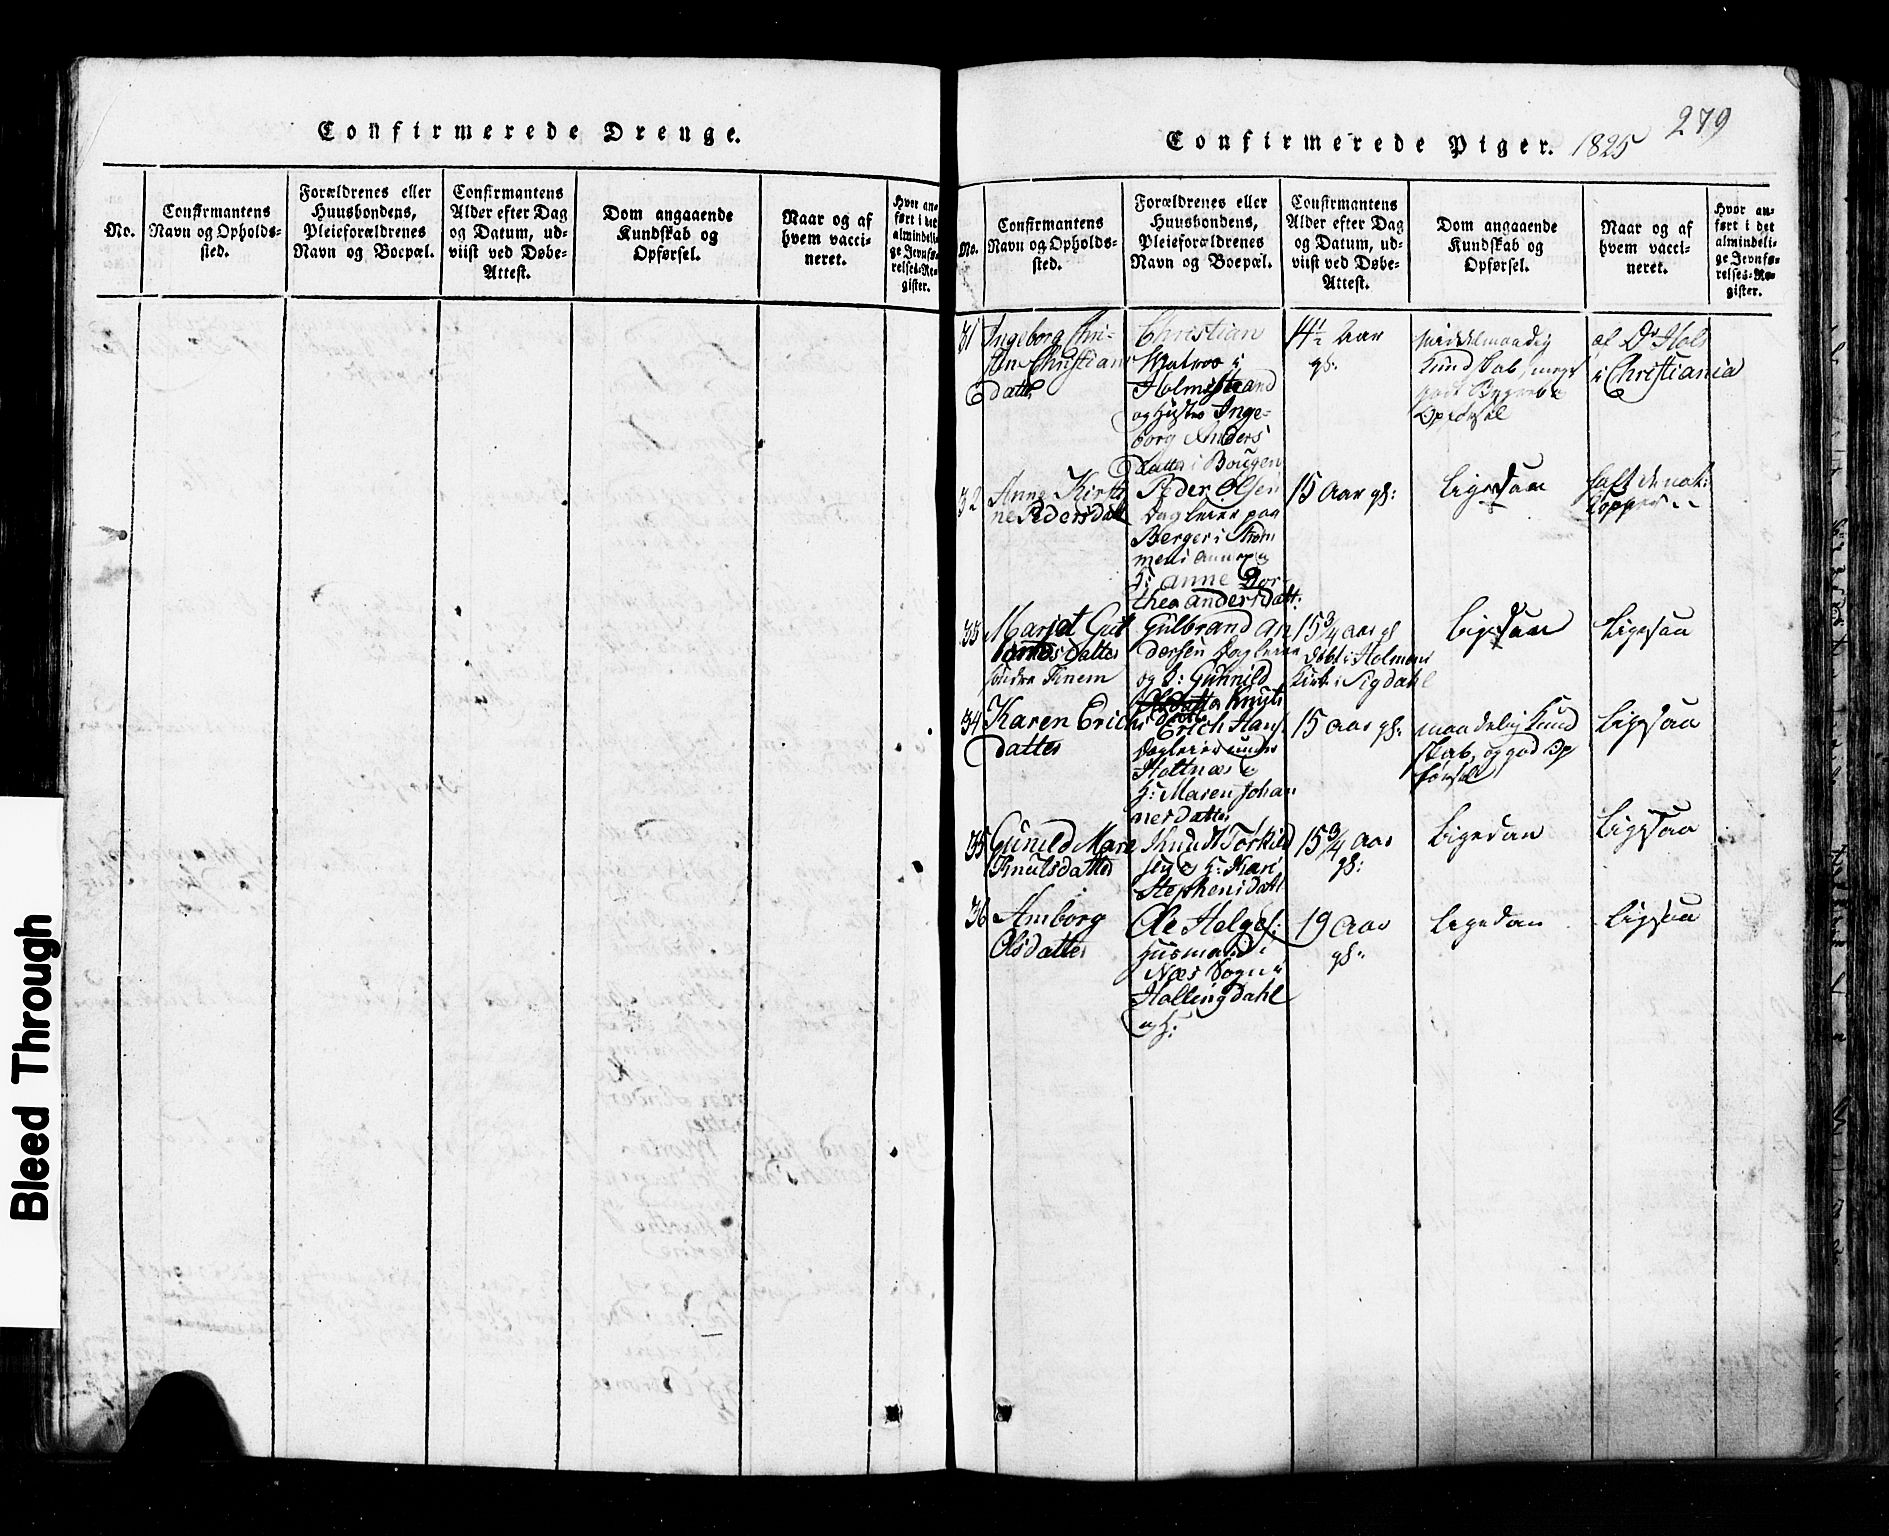 Confirmerede Drenge.
No.
Confirmantens
Navn og Opholds-
sted.
Forældrenes eller
Huusbondens,
Pleieforældrenes
Navn og Boepæl.
Confirmantens
Alder efter Dag
og Datum, ud-
viist ved Døbe-
Attest.
Dom angaaende
Kundskab og
Opførsel.
Naar og af
hvem vacci-
neret.
Hvor an-
ført i det
almindeli-
ge Jevnfø-
relses-Re-
gister.
Confirmerede Piger. 1825
279
No.
Confirmantens
Navn og Opholds-
sted.
Forældrenes eller
Huusbondens,
Pleieforældrenes
Navn og Boepæl.
Confirmantens
Alder efter Dag
og Datum, ud-
viist ved Døbe-
Attest.
Dom angaaende
Kundskab og
Opførsel.
Naar og af
hvem vacci-
neret.
Hvor an-
ført i det
almindeli-
ge Jevnfø-
relses-Re-
gister.
31
Ingeborg Chri-
stin Christians
datter
Christian
Matros i
Holmestrand
og Hustro Inge-
borg Anders
datter i
14½ Aar
gl:
Middelmaadig
Kundskab, meget
godt
Opførsel
af Dr Holst
i Christiania
32
Anne Kirsti
ne Pedersdatt
Peder Olsen
Dagleier paa
Berger i Strøm
men
H: Anne Dor-
thea Andersdatt:
15 Aar gl:
Ligesaa
haft de nat:
Kopper
33
Marjet Gul
datter
Gulbrand An
dersen Dagleier
og H: Gunnild
Knuts
datter
15¾ Aar gl
døbt i Holmens
Kirke i Sigdahl
Ligesaa
Ligesaa
34
Karen Erichs
datter
Erich Hans
Dagleier under
Holtnæs og
H: Maren Johan
nesdatter
15 Aar gl:
maadelig Kund
skab, og god Op
førsel
Ligesaa
35
Guneld Marie
Knutsdatter
Knudt Torkild
sen og H: Kari
Stephensdatt
15¾ Aar
gl:
Ligedan
Ligesaa
36
Amborg
Olsdatter
Ole Helges:
Husmand i
Næs Sogn i
Hallingdahl
og H:
19 Aar
gl:
Ligedan
Ligesaa
Bleed Through